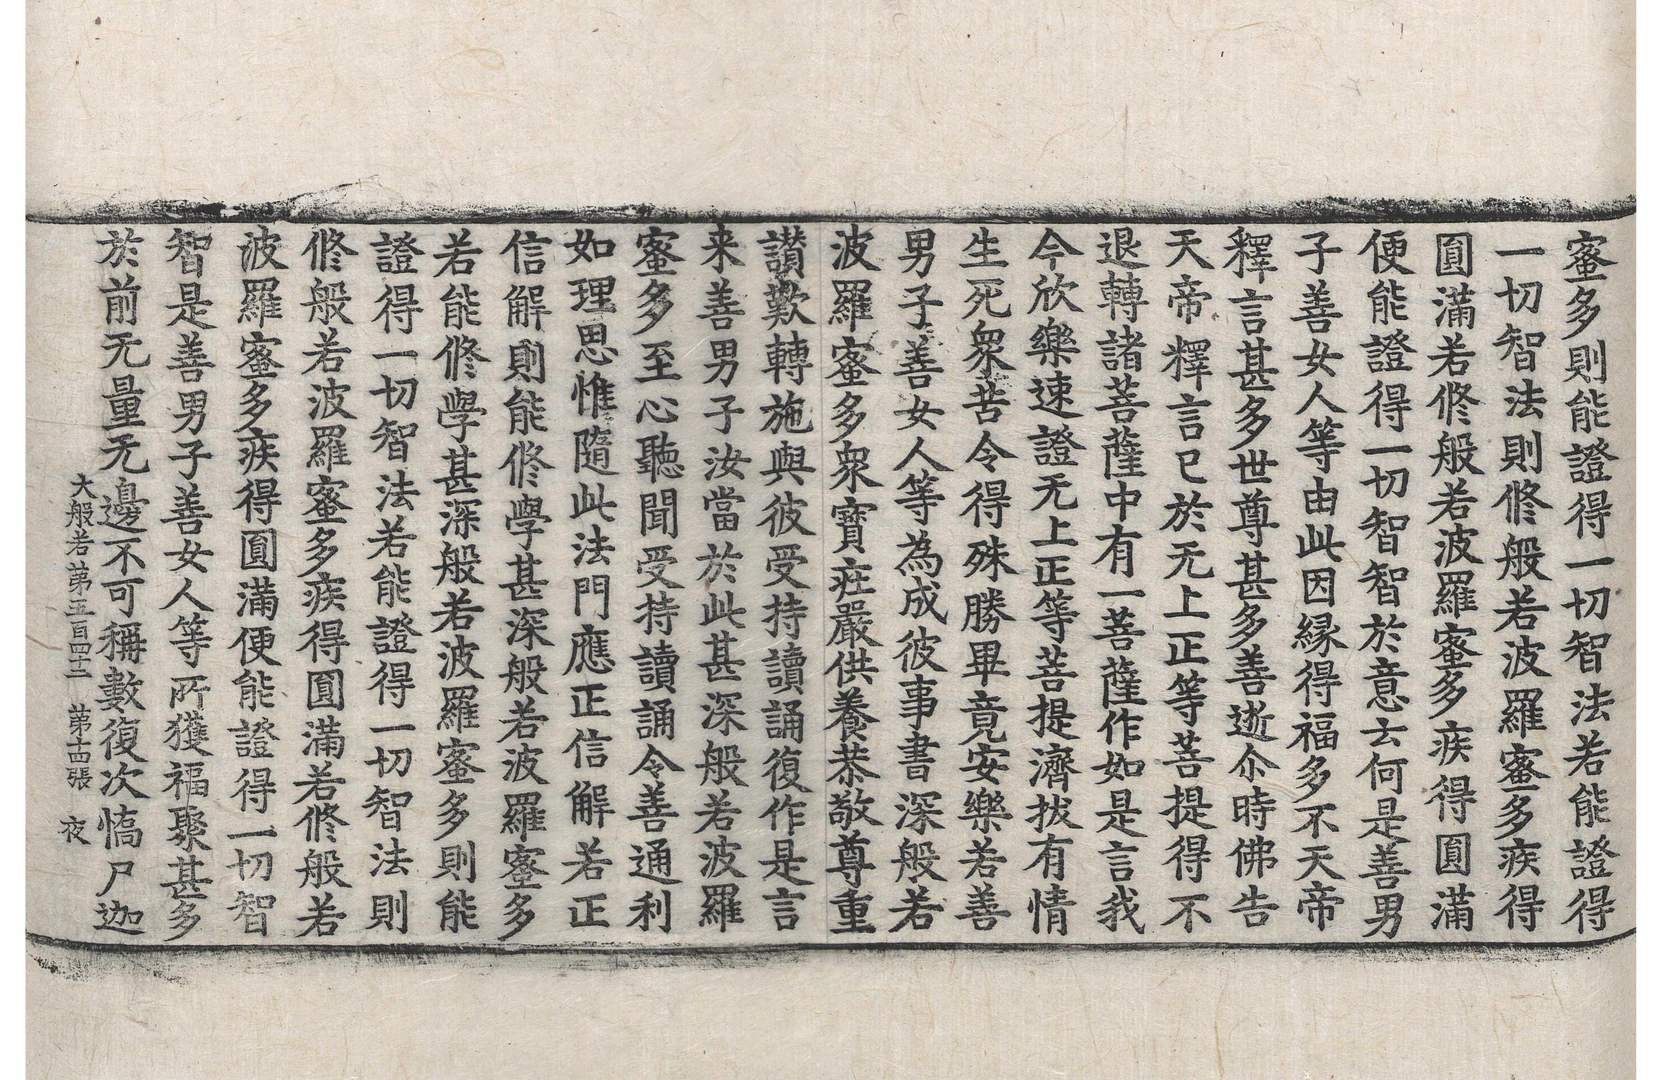 蜜多則能證得一切智法若能證得
一切智法則修般若波羅蜜多疾得
圓滿若修般若波羅蜜多疾得圓滿
便能證得一切智智於意云何是善男
子善女人等由此因縁得福多不天帝
釋言甚多世尊甚多善逝尒時佛告
天帝釋言已於无上正等菩提得不
退轉諸菩薩中有一菩薩作如是言我
今欣樂速證无上正等菩提濟拔有情
生死衆苦令得殊勝畢竟安樂若善
男子善女人等為成彼事書深般若
波羅蜜多衆寶莊嚴供養恭敬尊重
讃歎轉施與彼受持讀誦復作是言
来善男子汝當於此甚深般若波羅
蜜多至心聽聞受持讀誦令善通利
如理思惟隨此法門應正信解若正
信解則能修學甚深般若波羅蜜多
若能修學甚深般若波羅蜜多則能
證得一切智法若能證得一切智法則
修般若波羅蜜多疾得圓滿若修般若
波羅蜜多疾得圓滿便能證得一切智
智是善男子善女人等所獲福聚甚多
於前无量无邊不可稱數復次憍尸迦
大般若第五百四十二 第十四張 夜